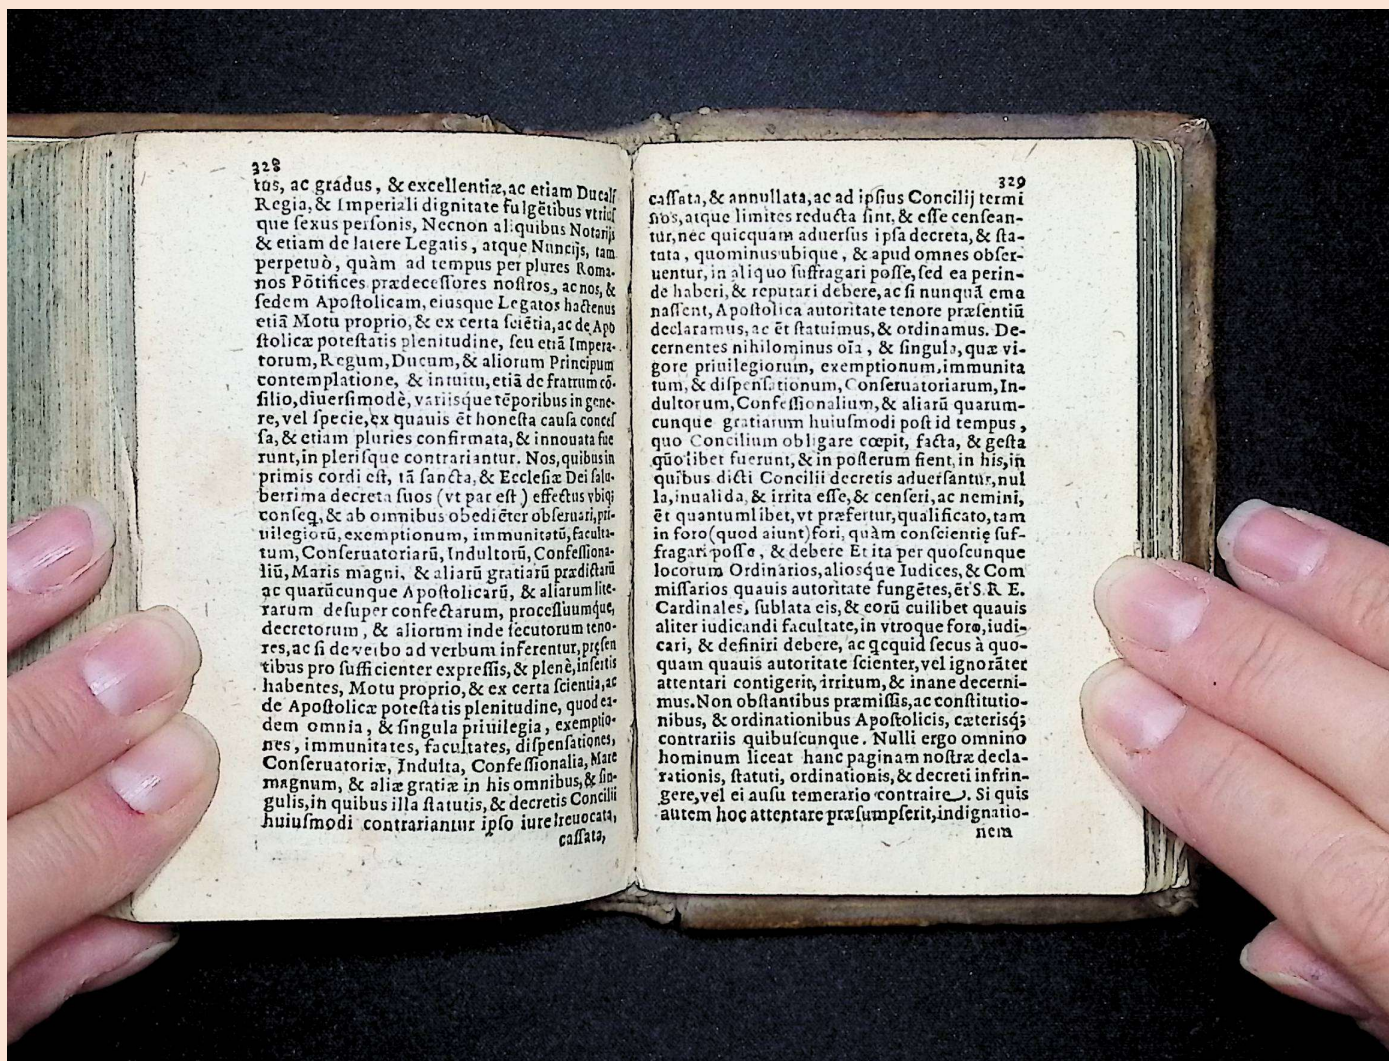 328
tus, ac gradus, & excellentiæ, ac etiam Ducalſ
Regia, & Imperiali dignitate fulgẽtibus vtriuſ
que ſexus perſonis, Necnon aliquibus Notarijs
& etiam de latere Legatis, atque Nuncijs, tam
perpetuò, quàm ad tempus per plures Roma-
nos Põtifices prædeceſſores noſtros, ac nos, &
ſedem Apoſtolicam, eiusque Legatos hactenus
etiã Motu proprio, & ex certa ſciẽtia, ac de Apo
ſtolicæ poteſtatis plenitudine, ſeu etiã Impera-
torum, Regum, Ducum, & aliorum Principum
contemplatione, & intuitu, etiã de fratrum cõ-
ſilio, diuerſimodè, variisque tẽporibus in gene-
re, vel ſpecie, ex quauis ẽt honeſta cauſa conceſ
ſa, & etiam pluries confirmata, & innouata fue
runt, in pleriſque contrariantur. Nos, quibus in
primis cordi eſt, tã ſancta, & Eccleſiæ Dei ſalu-
berrima decreta ſuos (vt par eſt) effectus vbiq;
conſeq, & ab omnibus obediẽter obſeruari, pri-
uilegiorũ, exemptionum, immunitatũ, faculta-
tum, Conſeruatoriarũ, Indultorũ, Confeſſiona-
liũ, Maris magni, & aliarũ gratiarũ prædictarũ
ac quarũcunque Apoſtolicarũ, & aliarum lite-
rarum deſuper confectarum, proceſſuumque,
decretorum, & aliorum inde ſecutorum teno-
res, ac ſi de verbo ad verbum inferentur, pręſen
tibus pro ſufficienter expreſſis, & plenè, inſertis
habentes, Motu proprio, & ex certa ſcientia, ac
de Apoſtolicæ poteſtatis plenitudine, quod ea-
dem omnia, & ſingula priuilegia, exemptio-
nes, immunitates, facultates, diſpenſationes,
Conſeruatoriæ, Indulta, Confeſſionalia, Mare
magnum, & aliæ gratiæ in his omnibus, & ſin-
gulis, in quibus illa ſtatutis, & decretis Concilii
huiuſmodi contrariantur ipſo iure reuocata,
caſſata,
329
caſſata, & annullata, ac ad ipſius Concilij termi
nos, atque limites reducta ſint, & eſſe cenſean-
tur, nec quicquam aduerſus ipſa decreta, & ſta-
tuta, quominus ubique, & apud omnes obſer-
uentur, in aliquo ſuffragari poſſe, ſed ea perin-
de haberi, & reputari debere, ac ſi nunquã ema
naſſent, Apoſtolica autoritate tenore præſentiũ
declaramus, ac ẽt ſtatuimus, & ordinamus. De-
cernentes nihilominus oĩa, & ſingula, quæ vi-
gore priuilegiorum, exemptionum, immunita
tum, & diſpenſationum, Conſeruatoriarum, In-
dultorum, Confeſſionalium, & aliarũ quarum-
cunque gratiarum huiuſmodi poſt id tempus,
quo Concilium obligare cœpit, facta, & geſta
quõlibet fuerunt, & in poſterum fient, in his, in
quibus dicti Concilii decretis aduerſantur, nul
la, inualida, & irrita eſſe, & cenſeri, ac nemini,
ẽt quantumlibet, vt præfertur, qualificato, tam
in foro (quod aiunt) fori, quàm conſcientię ſuf-
fragari poſſe, & debere Et ita per quoſcunque
locorum Ordinarios, aliosque Iudices, & Com
miſſarios quauis autoritate fungẽtes, ẽt S. R. E.
Cardinales, ſublata eis, & eorũ cuilibet quauis
aliter iudicandi facultate, in vtroque foro, iudi-
cari, & definiri debere, ac qcquid ſecus à quo-
quam quauis autoritate ſcienter, vel ignorãter
attentari contigerit, irritum, & inane decerni-
mus. Non obſtantibus præmiſſis, ac conſtitutio-
nibus, & ordinationibus Apoſtolicis, cæterisq;
contrariis quibuſcunque. Nulli ergo omnino
hominum liceat hanc paginam noſtræ decla-
rationis, ſtatuti, ordinationis, & decreti infrin-
gere, vel ei auſu temerario contraire. Si quis
autem hoc attentare præſumpſerit, indignatio-
nem